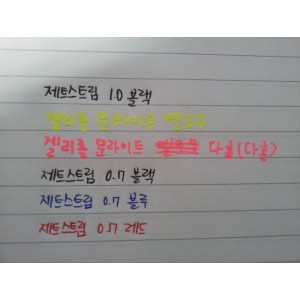 제트스트림 1.0 블랙
겔리롤 문라이트 옐로우
겔리롤 문라이트 다홍(다홍)
제트스트림 0.7 블랙
제트스트림 0.7 블루
제트스트림 0.7 레드